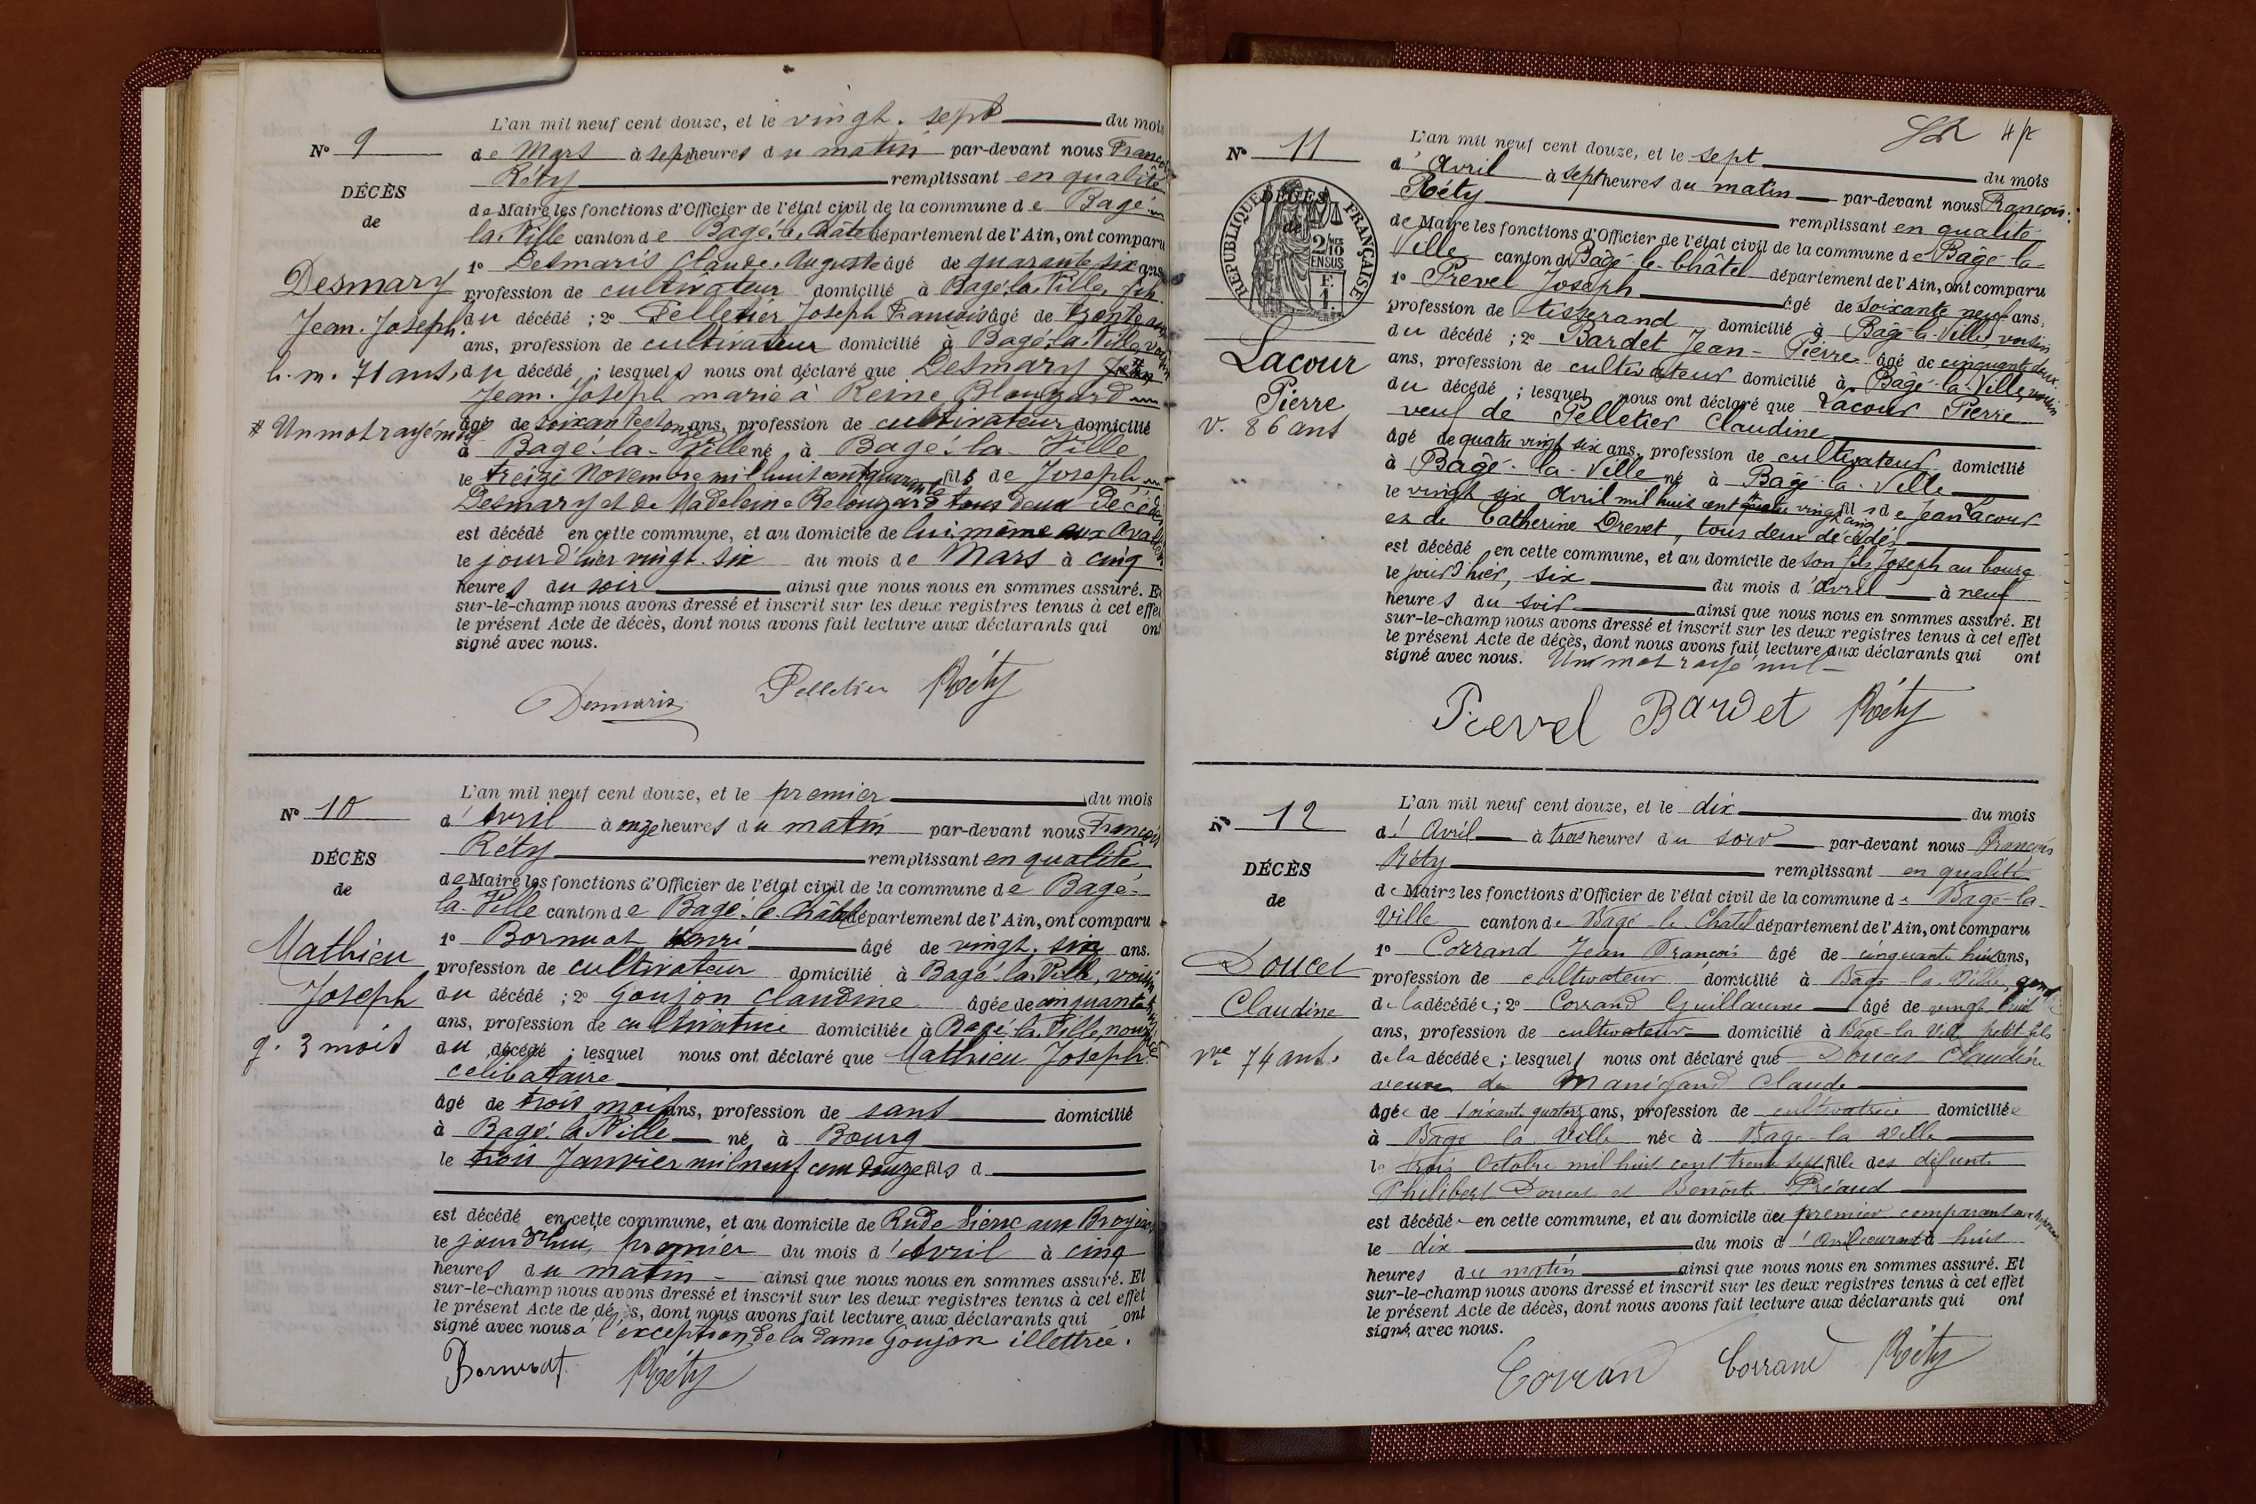 L'an mil neuf cent douze, et le vingt. sept du mois
N° 9
de Mars à sept heures du matin par-devant nous François
Réty remplissant en qualité
DÉCÈS
de Maire les fonctions d'Officier de l'état civil de la commune de Bagé-
de
la. Ville canton de Bagé. le. Châtel département de l'Ain, ont comparu
1° Desmaris Claude. Auguste âgé de quarante six ans
Desmary
profession de cultivateur domicilié à Bagé. la. Ville, fils
Jean. Joseph.
du décédé ; 2° Pelletier Joseph François âgé de trente
ans, profession de cultivateur domicilié à Bagé. la. Ville, voisin
h. m. 71 ans,
du décédé ; lesquels nous ont déclaré que Desmary
Jean. Joseph marié à Reine
* Un mot rayé nul
âgé de soixante et onze ans, profession de cultivateur domicilié
à Bagé. la. Ville né à Bagé. la. Ville
le treize Novembre mil huit cent quarante fils de Joseph
Desmary et de Madeleine Belouzard tous deux décédés
est décédé en cette commune, et au domicile de lui même aux
le jour d'hier vingt. six du mois de Mars à cinq
heures du soir ainsi que nous nous en sommes assuré. Et
sur-le-champ nous avons dressé et inscrit sur les deux registres tenus à cet effet
le présent Acte de décès, dont nous avons fait lecture aux déclarants qui ont
signé avec nous.
Desmaris Pelletier Réty
L'an mil neuf cent douze, et le premier du mois
N° 10
d'Avril à onze heures du matin par-devant nous François
Réty remplissant en qualité
DÉCÈS
de Maire les fonctions d'Officier de l'état civil de la commune de Bagé-
de
la. Ville canton de Bagé. le. Châtel département de l'Ain, ont comparu
1° Bornuat Henri âgé de vingt. six ans.
Mathieu
profession de cultivateur domicilié à Bagé. la. Ville, voisin
Joseph
du décédé ; 2° Goujon Claudine âgée de cinquante
ans, profession de cultivatrice domiciliée à Bagé. la. Ville, nourrice
g. 3 mois
du décédé ; lesquel nous ont déclaré que Mathieu Joseph
célibataire
âgé de trois mois ans, profession de sans domicilié
à Bagé. la Ville né à Bourg
le trois Janvier mil neuf cent douze fils d
est décédé en cette commune, et au domicile de Rude
le jourd'hui, premier du mois d'Avril à cinq
heures du matin ainsi que nous nous en sommes assuré. Et
sur-le-champ nous avons dressé et inscrit sur les deux registres tenus à cet effet
le présent Acte de décès, dont nous avons fait lecture aux déclarants qui ont
signé avec nous à l'exception de la dame Goujon illettrée.
Bornuat Réty
L'an mil neuf cent douze, et le sept du mois
N° 11
d'Avril à sept heures du matin par-devant nous François
Réty remplissant en qualité
RÉPUBLIQUE FRANÇAISE
DÉCÈS
de
de Maire les fonctions d'Officier de l'état civil de la commune de Bâgé-la-
Ville canton de Bâgé-le-Châtel département de l'Ain, ont comparu
1° Prevel Joseph âgé de soixante neuf ans,
profession de tisserand domicilié à Bâgé-la-Ville, voisin
Lacour
du décédé ; 2° Bardet Jean-Pierre âgé de cinquante deux
ans, profession de cultivateur domicilié à Bâgé-la-Ville, voisin
Pierre
du décédé ; lesquel nous ont déclaré que Lacour Pierre
v. 86 ans
veuf de Pelletier Claudine
âgé de quatre vingt six ans, profession de cultivateur domicilié
à Bâgé-la-Ville né à Bâgé-la-Ville
le vingt six Avril mil huit cent vingt cinq fils de Jean Lacour
et de Catherine Drevet, tous deux décédés
est décédé en cette commune, et au domicile de son fils Joseph au bourg
le jour d'hier, six du mois d'Avril à neuf
heures du soir ainsi que nous nous en sommes assuré. Et
sur-le-champ nous avons dressé et inscrit sur les deux registres tenus à cet effet
le présent Acte de décès, dont nous avons fait lecture aux déclarants qui ont
signé avec nous. Un mot rayé nul
Prevel Bardet Réty
L'an mil neuf cent douze, et le dix du mois
N° 12
d'Avril à trois heures du soir par-devant nous François
Réty remplissant en qualité
DÉCÈS
de Maire les fonctions d'Officier de l'état civil de la commune de Bagé-la-
de
Ville canton de Bagé-le-Châtel département de l'Ain, ont comparu
1° Corrand Jean François âgé de cinquante huit ans,
Doucet
profession de cultivateur domicilié à Bagé-la-Ville, gendre
Claudine
de la décédée ; 2° Corrand Guillaume âgé de vingt huit
ans, profession de cultivateur domicilié à Bagé-la Ville petit fils
Vve 74 ans.
de la décédée ; lesquels nous ont déclaré que Doucet Claudine
veuve de Manigand Claude
âgée de soixante quatorze ans, profession de cultivatrice domiciliée
à Bagé la Ville née à Bagé-la Ville
le trois Octobre mil huit cent trente sept fille des défunts
Philibert Doucet et Benoite Préaud
est décédée en cette commune, et au domicile du premier comparant
le dix du mois d'Avril courant à huit
heures du matin ainsi que nous nous en sommes assuré. Et
sur-le-champ nous avons dressé et inscrit sur les deux registres tenus à cet effet
le présent Acte de décès, dont nous avons fait lecture aux déclarants qui ont
signé avec nous.
Corrand Corrand Réty